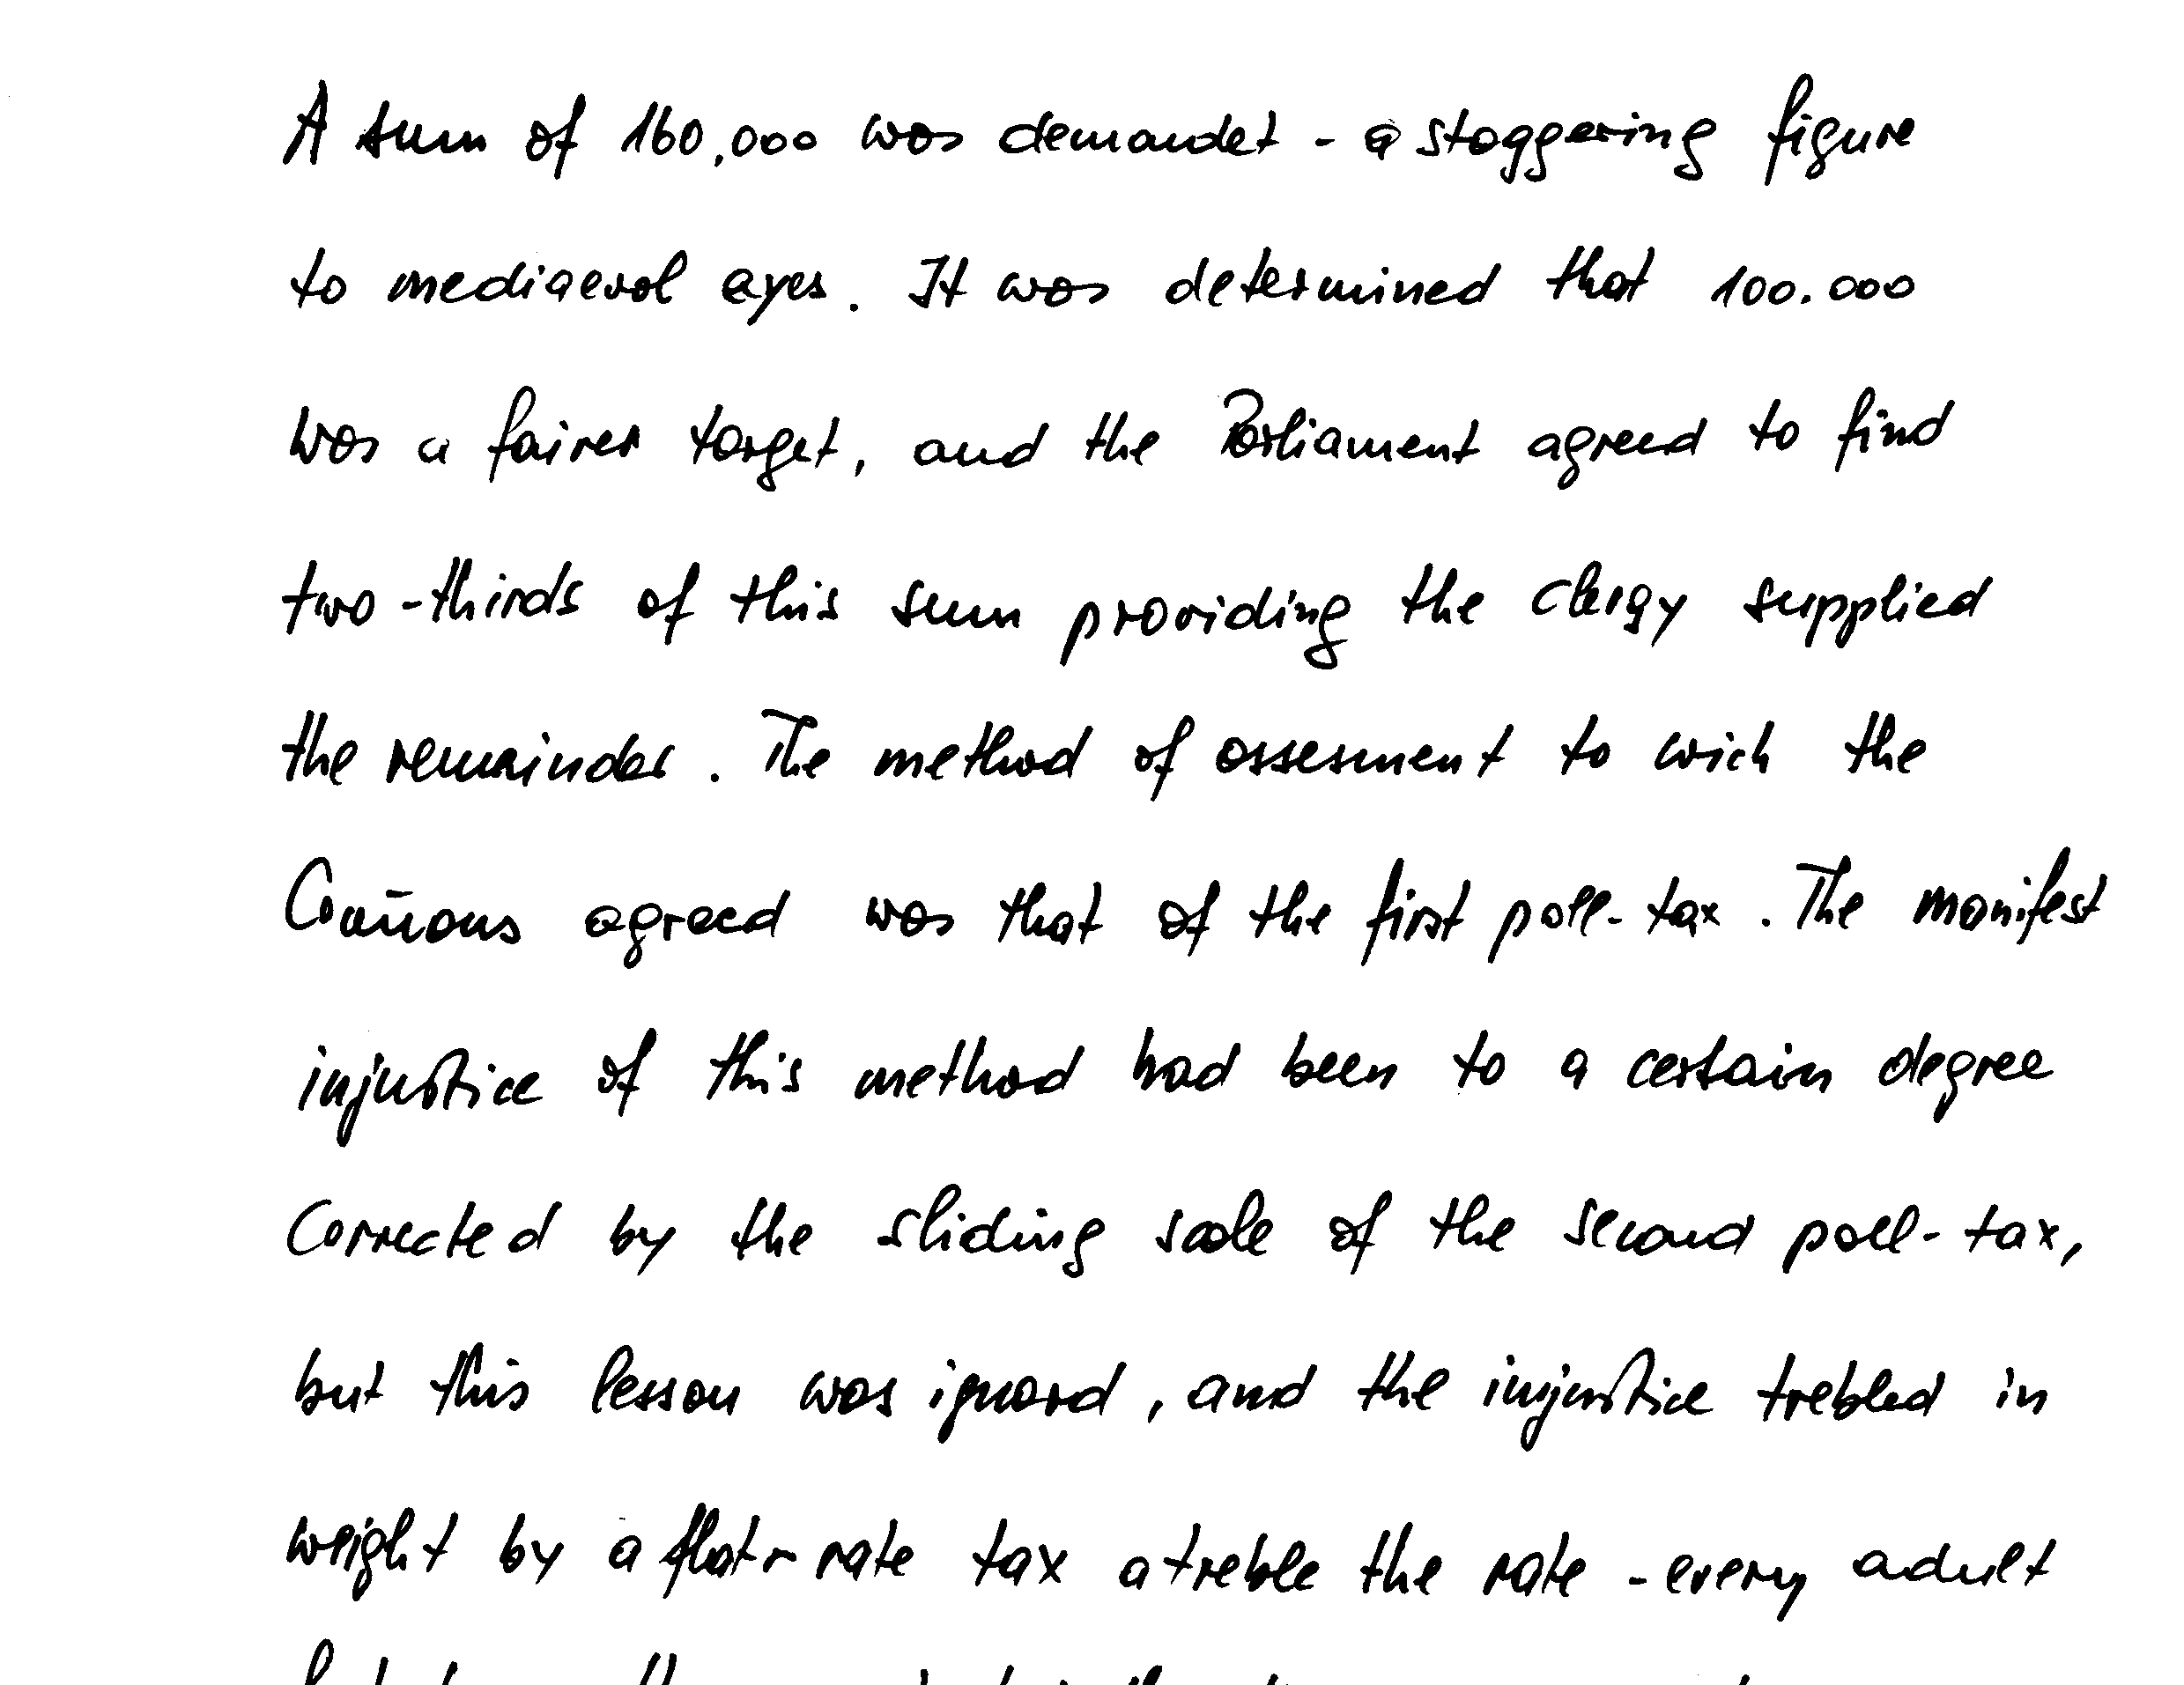 A sum of 160,000 was demandet - a staggering figure
to mediaeval eyes. It was determined that 100.000
was a fairer target, and the Parliament agreed to find
two-thirds of this sum providing the clergy supplied
the remainder. The method of assesment to wich the
Com̄ons agreed was that of the first poll-tax. The manifest
injustice of this method had been to a certain degree
corrected by the sliding scale of the second poll-tax,
but this lesson was ignord, and the injustice trebled in
weight by a flat-rate tax a treble the rate - every adult